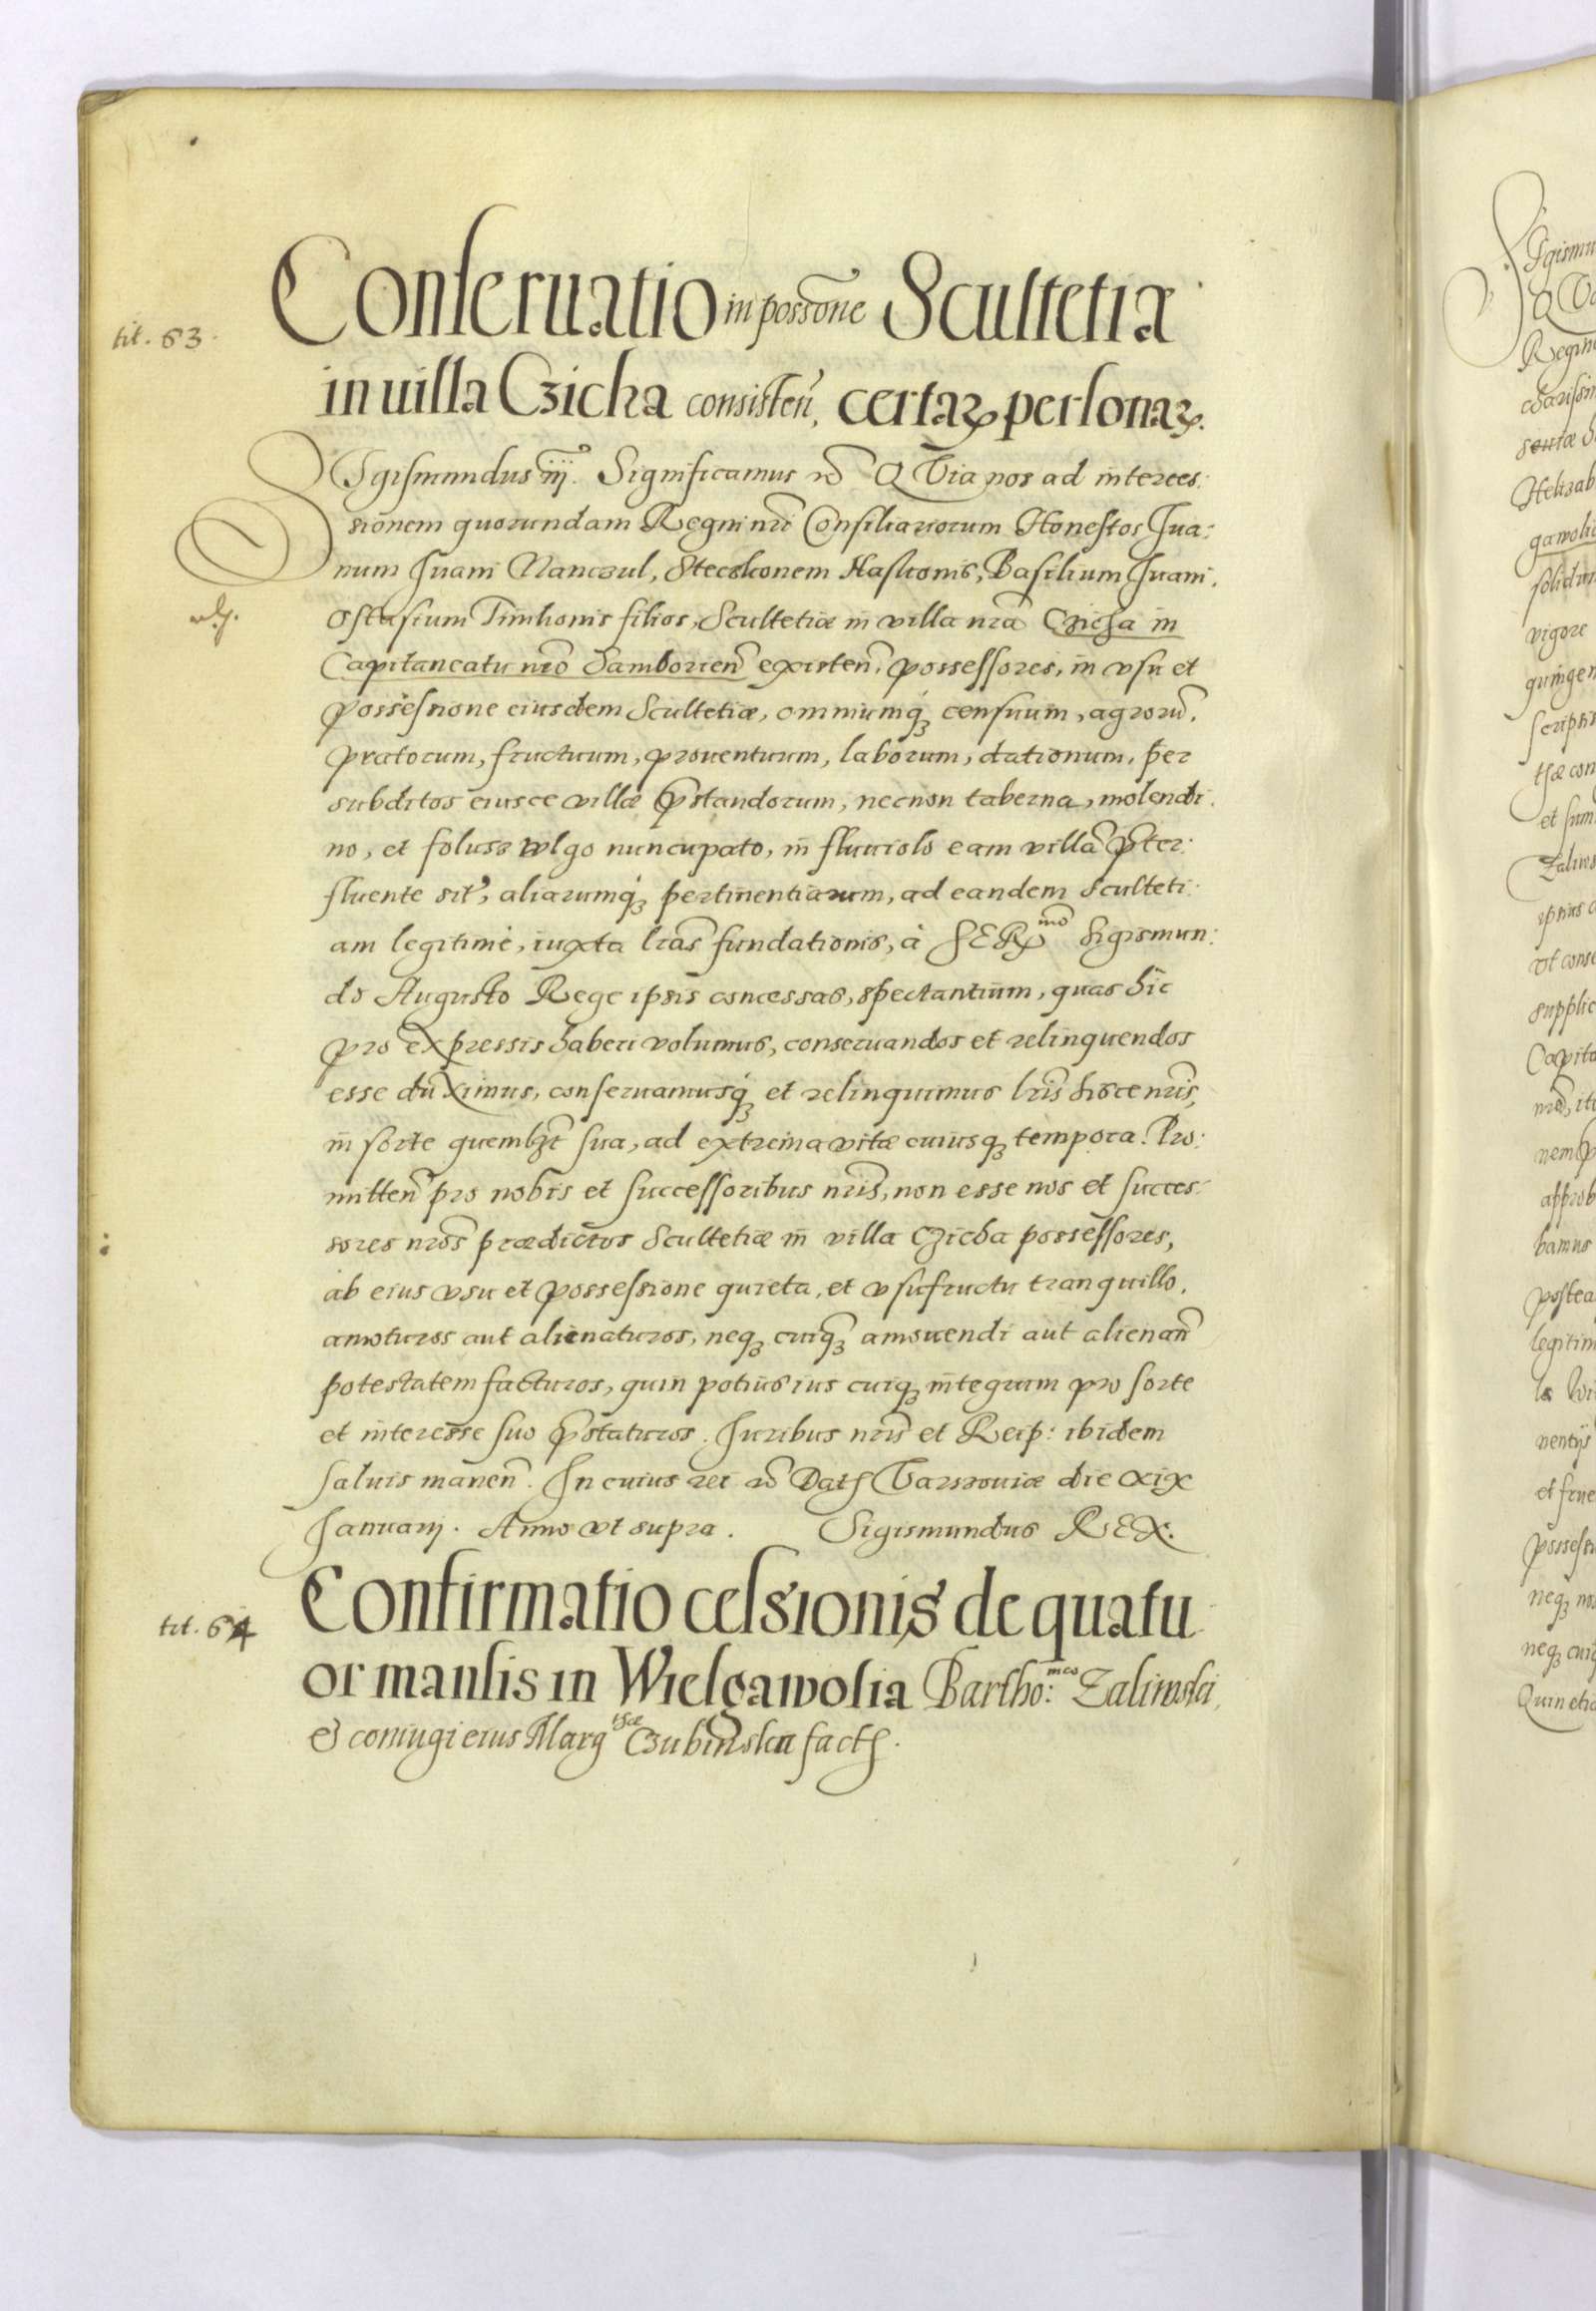 tit. 63.
Conseruatio in possōne Scultetiæ
in uilla Czicha consisteñ, certaꝝ personaꝝ.
Sigismundus iij. Significamus QVia nos ad interces:
sionem quorundam Regni nr̃i Consiliariorum Honestos Jua:
num Juani Nanczul, Steczkonem Haskonis, Basilium Juani,
Ostasium Timkonis filios, Scultetiæ in villa nr̃a Czicha in
Capitaneatu nr̃o Samborieñ existeñ. possessores, in vsu et
possessione eiusdem Scultetiæ, omniumqꝫ censuum, agrorũ,
pratorum, fructuum, prouentuum, laborum, dationum, per
subditos eiusce villæ p̃standorum, necnon taberna, molendi:
no, et folusz vlgo nuncupato, in fluuiolo eam villã p̃ter:
fluente sit̃, aliarumqꝫ pertinentiarum, ad eandem Sculteti:
am legitimè, iuxta lr̃as fundationis, à SER mõ Sigismun:
do Augusto Rege ipsis concessas, spectantium, quas hîc
pro expressis haberi volumus, conseruandos et relinquendos
esse duximus, conseruamusqꝫ et relinquimus lr̃is hisce nr̃is,
in sorte quemlꝫt sua, ad extrema vitæ cuiusqꝫ tempora. Pro:
mitteñ pro nobis et successoribus nr̃is, non esse nos et succes:
sores nr̃os prædictos Scultetiæ in villa Czicha possessores,
ab eius vsu et possessione quieta, et vsufructu tranquillo,
amoturos aut alienaturos, neqꝫ cuiqꝫ amouendi aut alienañ
potestatem facturos, quin potius ius cuiqꝫ integrum pro sorte
et interesse suo p̃staturos. Juribus nr̃is et Reip: ibidem
saluis maneñ. In cuius rei Datꝭ Varszouiæ die xix
Januarij. Anno vt supra. Sigismundus REX.
tit. 64
Confirmatio cessionis de quatu
or mansis in Wielgawolia Bartho: meo Zaliwski,
& coniugi eius Marg thæ Czubinska factꝭ.